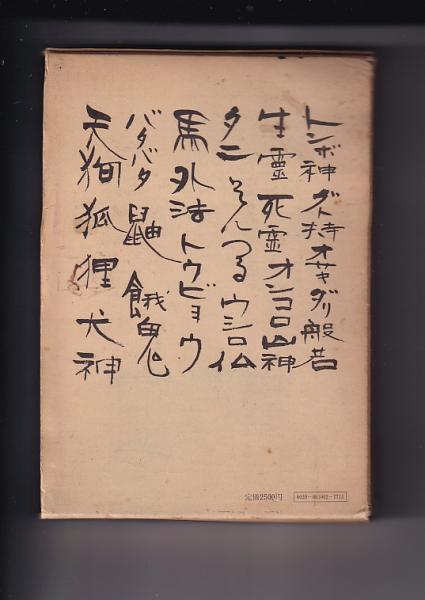 トンボ神 ゲド持 オサキ ダリ 般若
生霊 死霊 オンコロ 山神
タニ そんつる ウシロ仏
馬 外法 トウビョウ
バタバタ 鼬 餓鬼
天狗 狐 狸 犬神
定価2500円